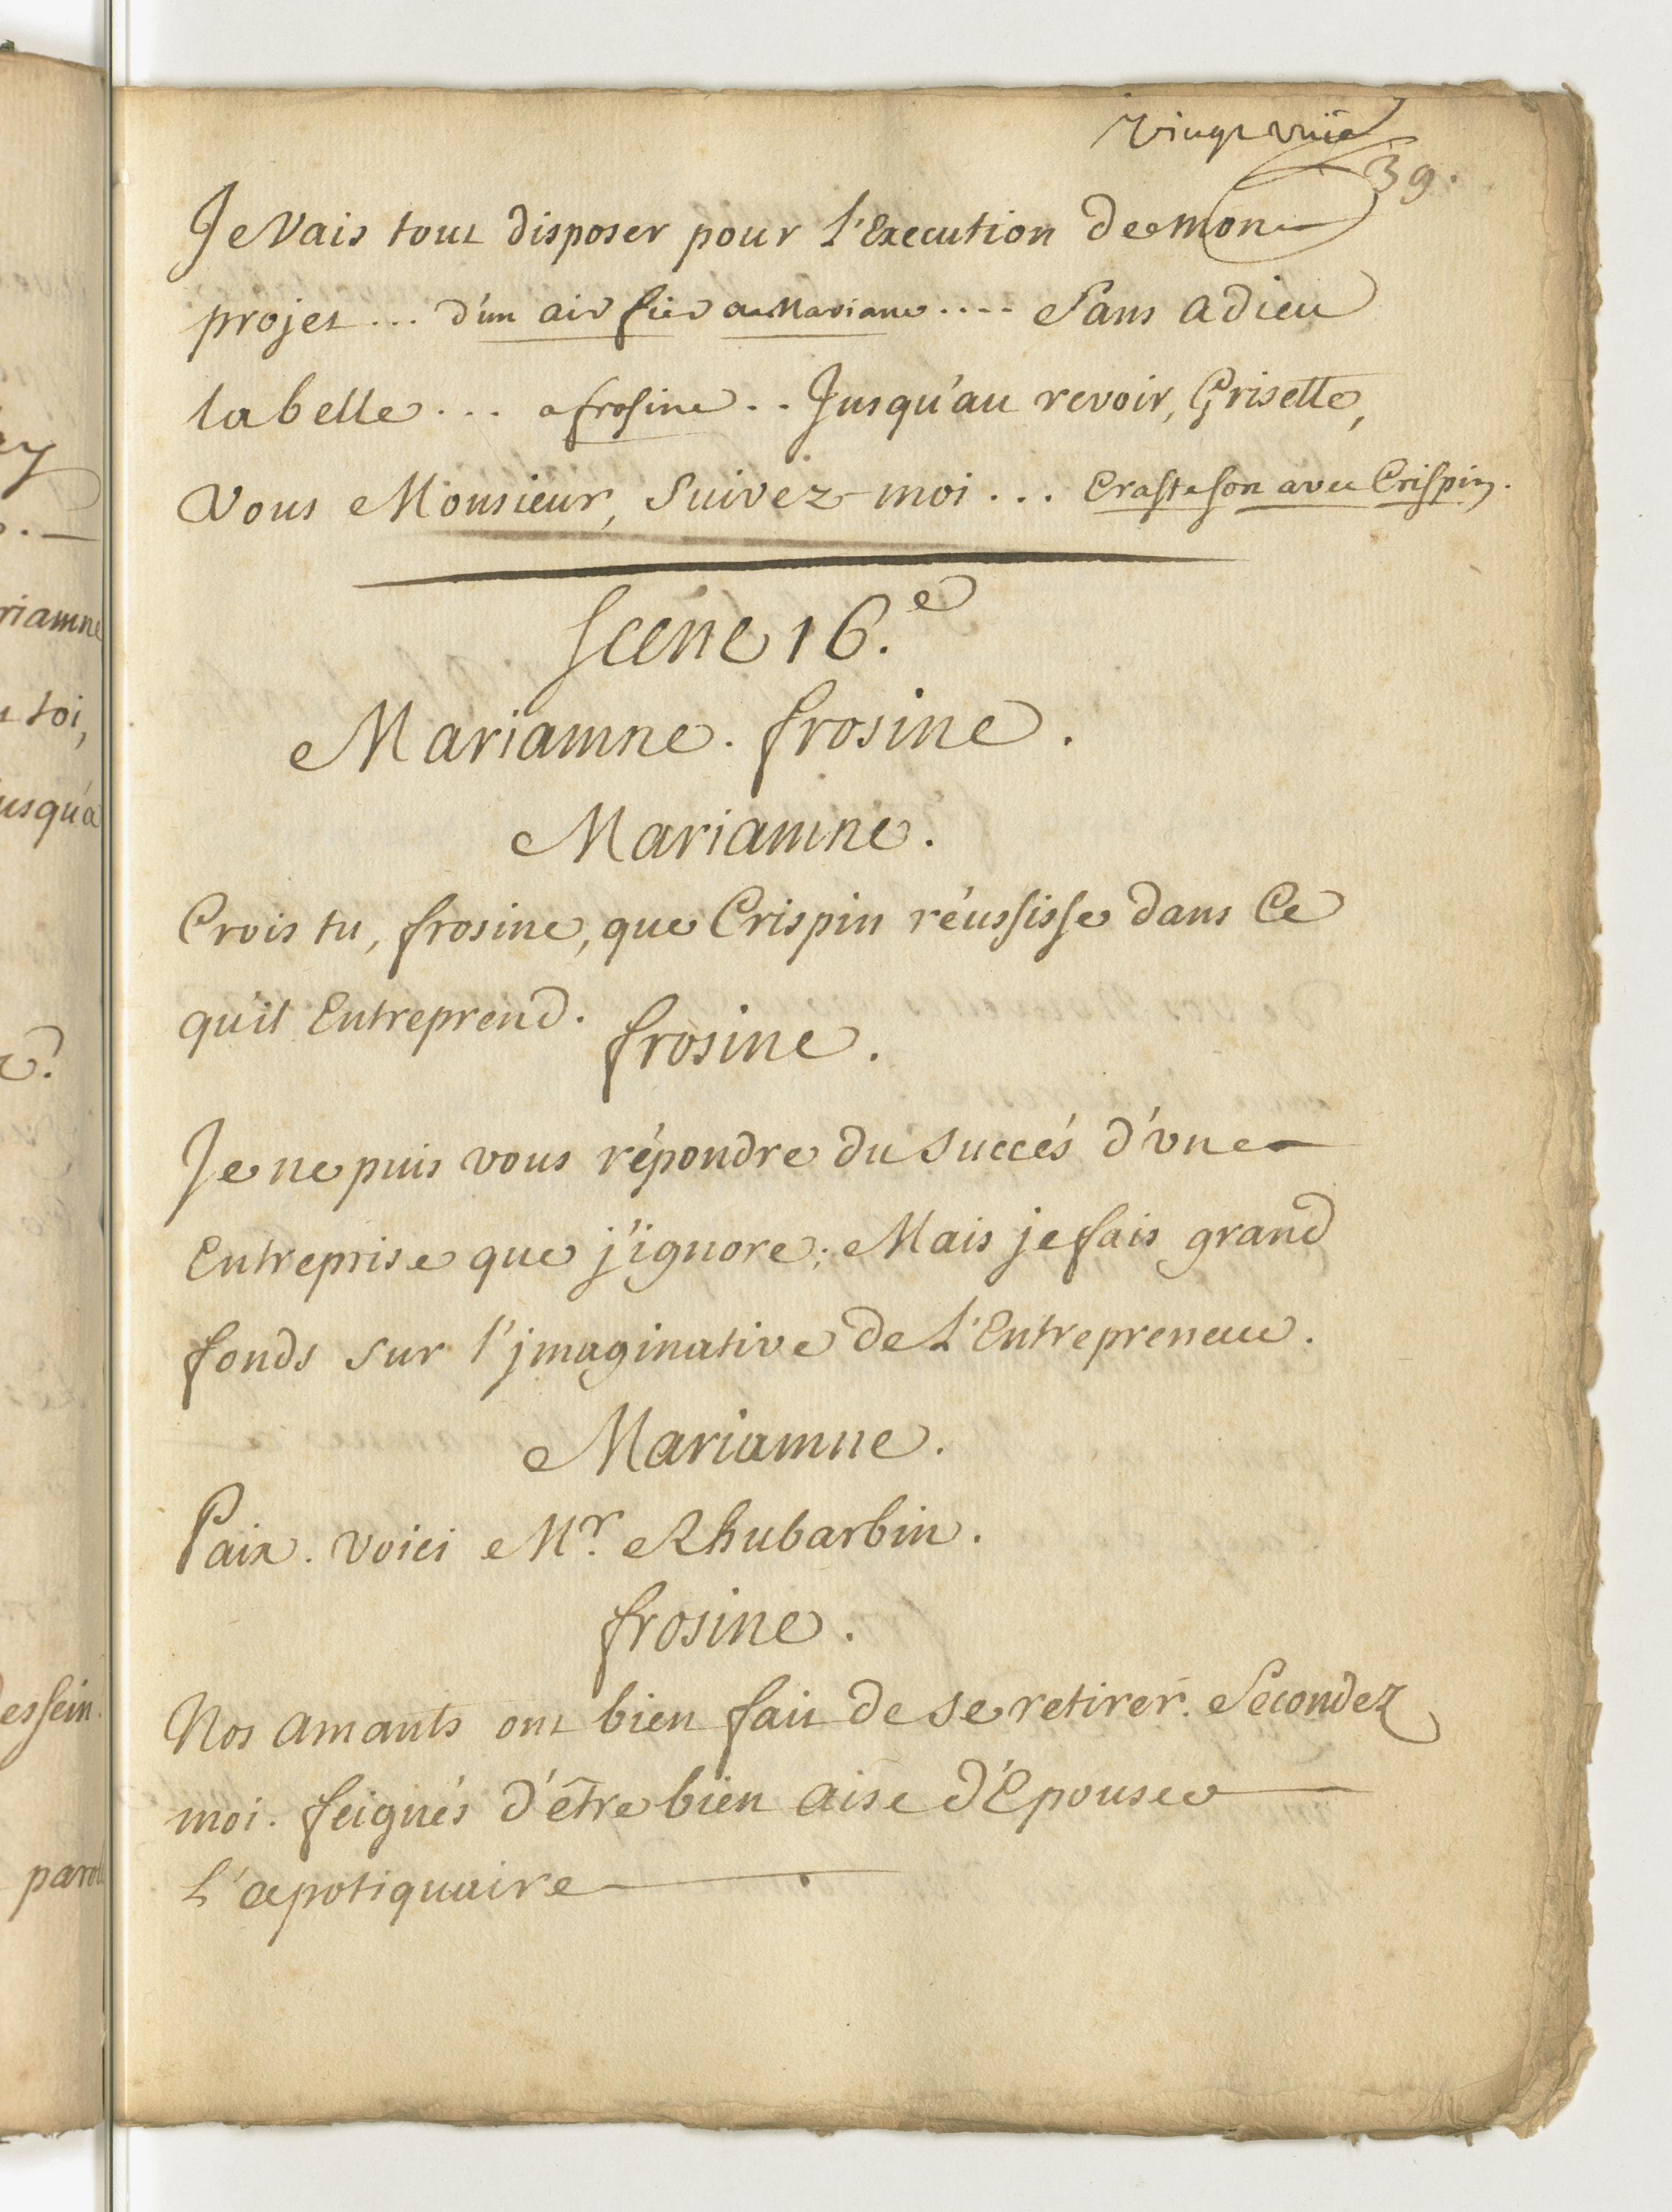 39.
Je Vais tout disposer pour l'Execution de mon
projet ... d'un air fier a Mariane .... Sans adieu
la belle ... a frosine .. Jusqu'au revoir, Grisette,
Vous Monsieur, Suivez-moi ... Eraste sort avec Crispin.
Scene 16.e
Mariamne. frosine.
Mariamne.
Crois tu, frosine, que Crispin réussisse dans Ce
qu'il Entreprend.
frosine.
Je ne puis vous répondre du succés d'vne
Entreprise que j'ignore; Mais je fais grand
fonds sur l'jmaginative de L'Entrepreneur.
Mariamne.
Paix. voici Mr. Rhubarbin.
frosine.
Nos amants ont bien fait de se retirer. Secondez
moi. feignés d'être bien aise d'Epouser
L'apotiquaire
riamne
toi,
usqu'a
essein.